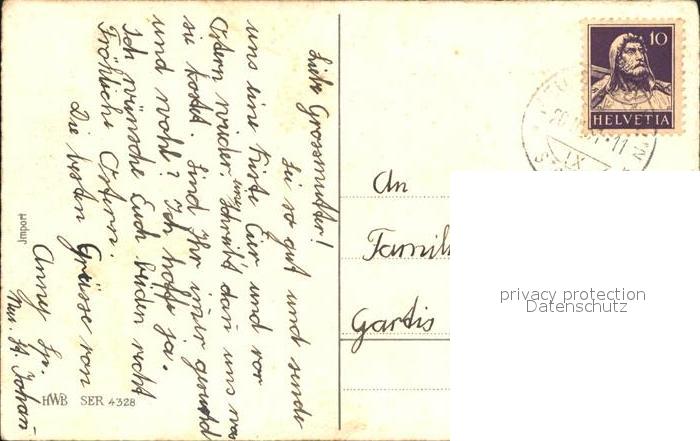 Liebe Grossmutter!
Sei so gut und sende
uns eine Kiste Eier und vor
Ostern wieder. Schreibt dan uns
uns
sie kostet. Sind Ihr imer gesund
und wohl? Ich hoffe ja.
Ich wünsche Euch beiden recht
Fröhliche Ostern.
Die besten Grüsse von
Anny Sp.
Neu. St. Johann
Import
HWB SER 4328
10
HELVETIA
An
Famili
Gartis
privacy protection
Datenschutz